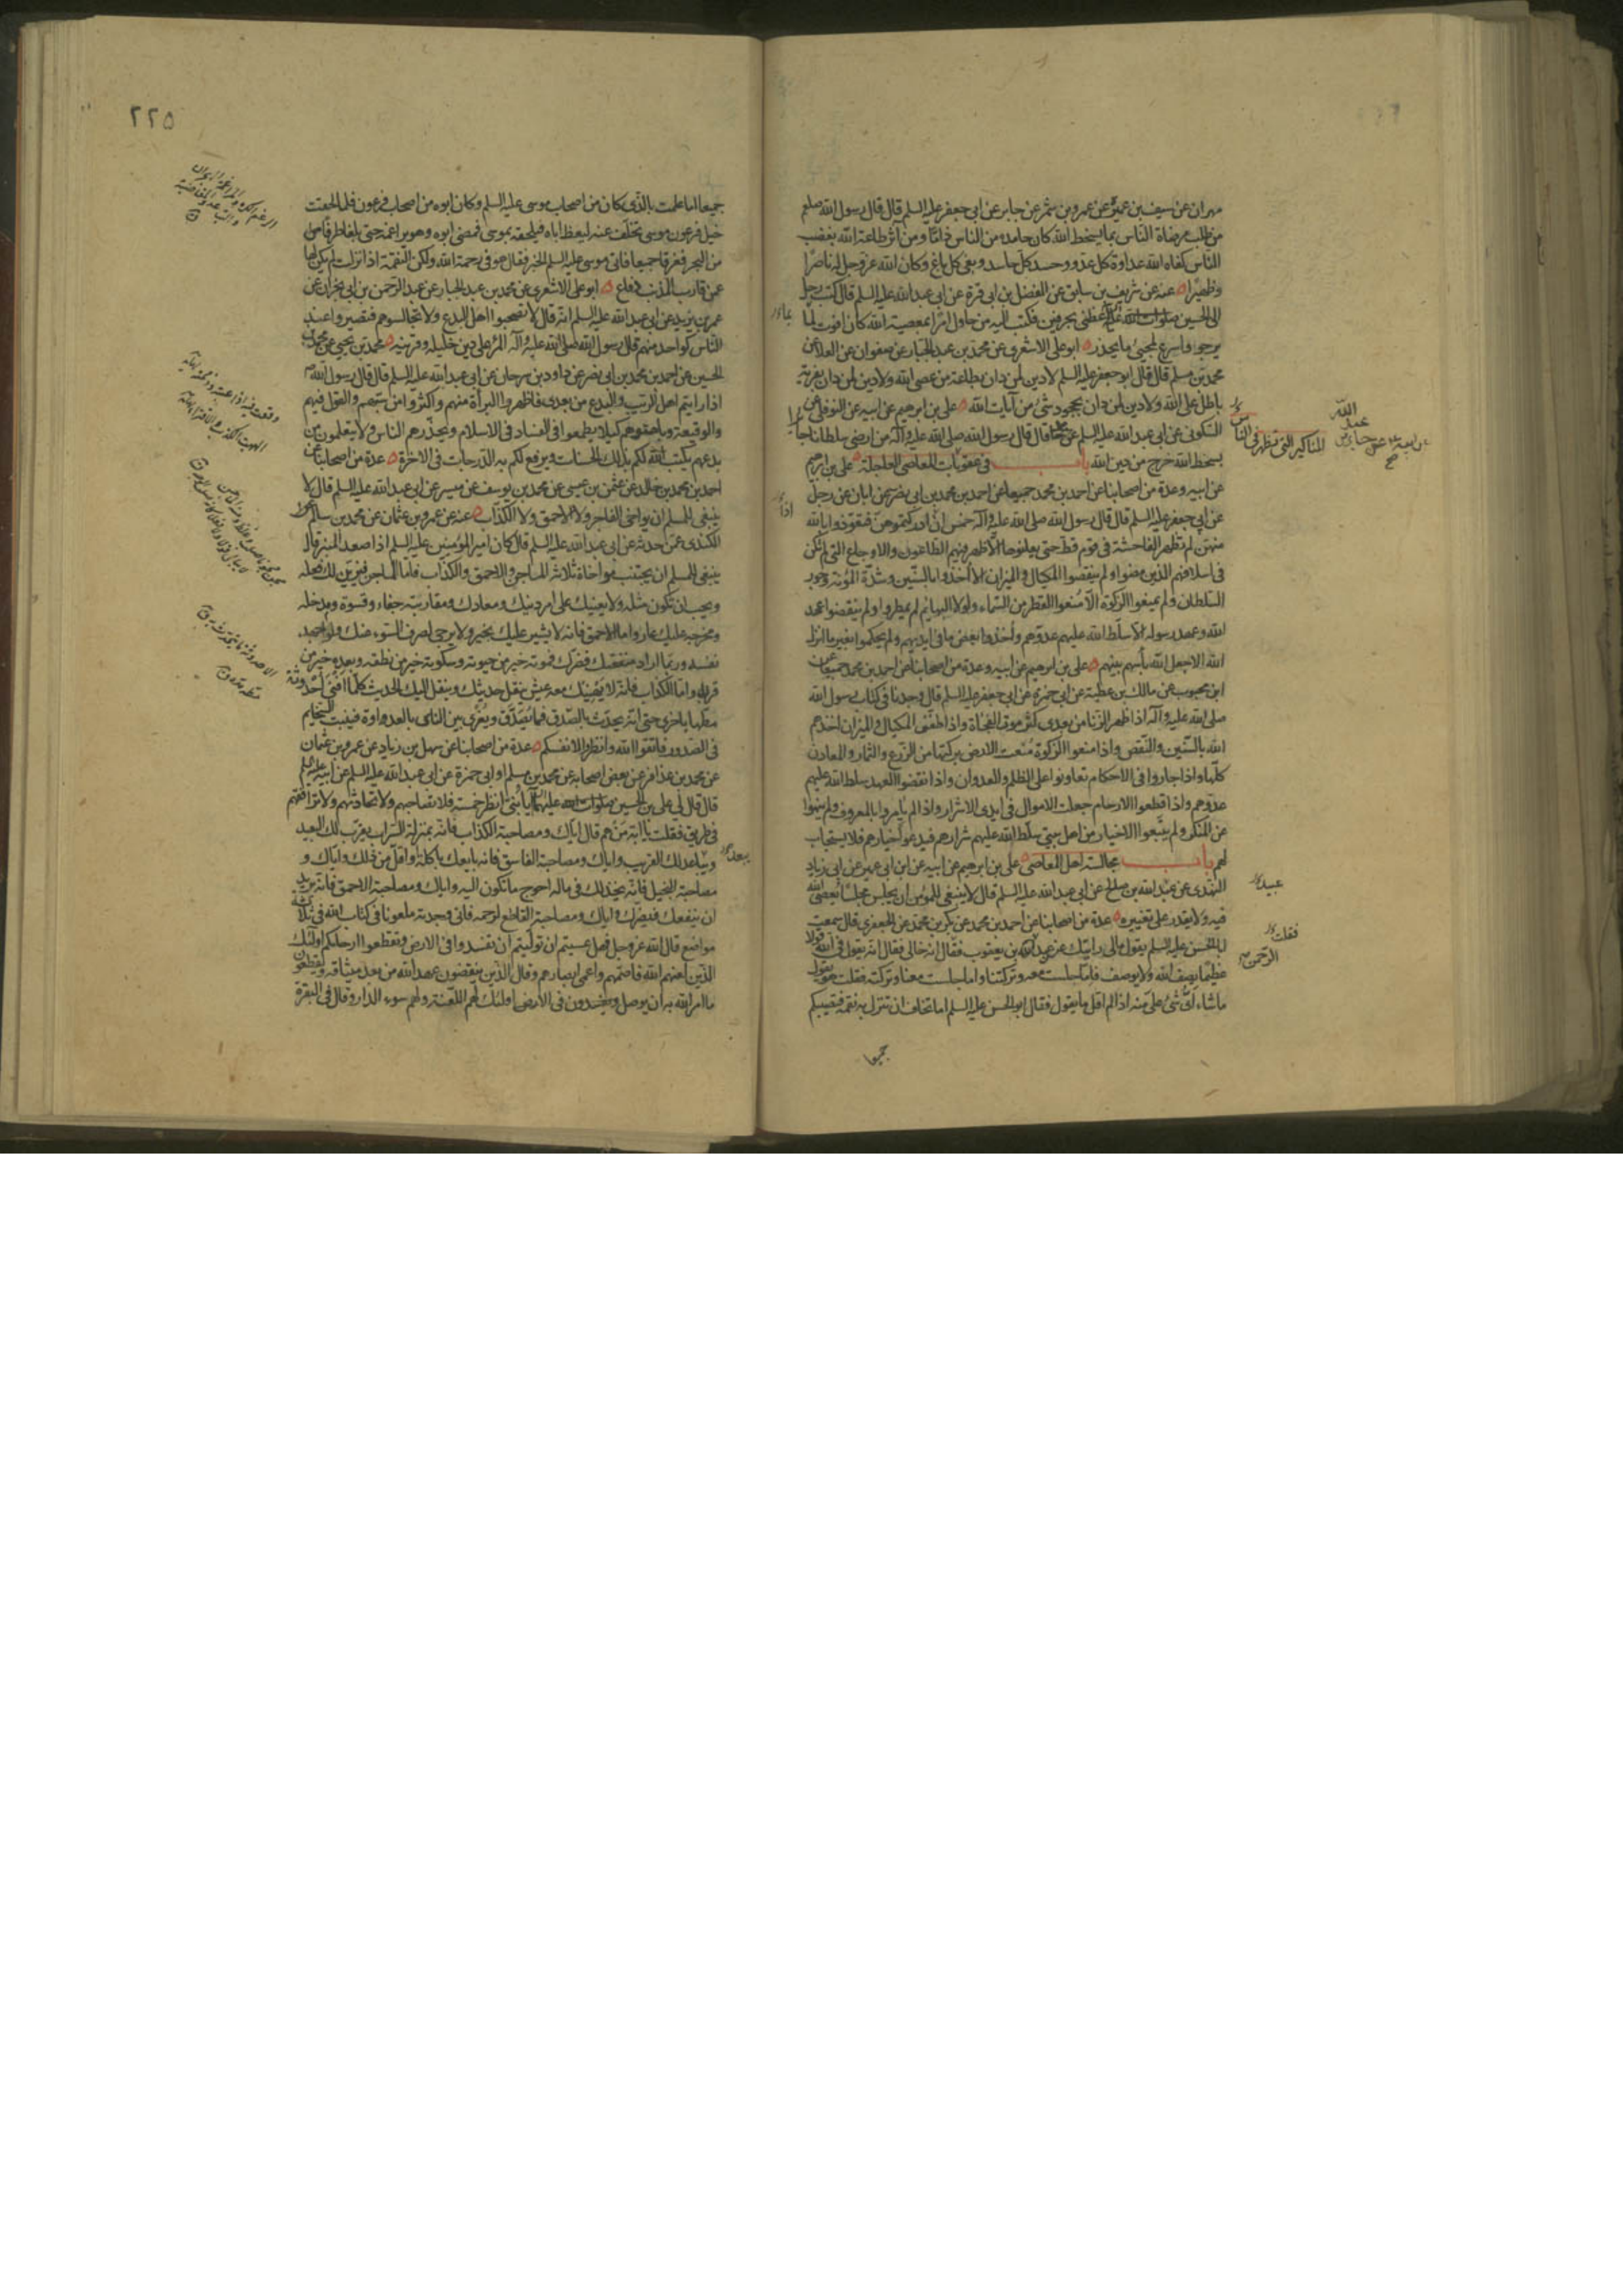 مهران عن سيف بن عميرة عن عمرو بن شمر عن جابر عن ابى جعفر عليه السلم قال قال رسول الله صلعم
من طلب مرضاة الناس بما يسخط الله كان حامده من الناس ذامّا ومن آثر طاعة الله بغضب
الناس كفاه الله عداوة كل عدو وحسد كل حاسد وبغى كل باغ وكان الله عز وجل له ناصرًا
وظهيرًا عنه عن شريف بن سابق عن الفضل بن ابى قرة عن ابى عبد الله عليه السلم قال كتب رجل
الى الحسين صلوات الله عليه عظنى بحرفين فكتب اليه من حاول امرًا بمعصية الله كان افوت لما
يرجو واسرع لمجيئ ما يحذر ابو على الاشعرى عن محمد بن عبد الجبار عن صفوان عن العلا عن
محمد بن مسلم قال قال ابو جعفر عليه السلم لا دين لمن دان بطاعة من عصى الله ولا دين لمن دان بفرية
باطل على الله ولا دين لمن دان بجحود شئ من آيات الله على بن ابرهيم عن ابيه عن النوفلى عن
السكونى عن ابى عبد الله عليه السلم عن قال قال رسول الله صلى الله عليه وآله من ارضى سلطانا جائرا
بسخط الله خرج من دين الله باب فى عقوبات المعاصى العاجلة على بن ابرهيم
عن ابيه وعدة من اصحابنا عن احمد بن محمد جميعا عن احمد بن محمد بن ابى نصر عن ابان عن رجل
عن ابى جعفر عليه السلم قال قال رسول الله صلى الله عليه وآله خمس ان ادركتموهن فتعوذوا بالله
منهن لم تظهر الفاحشة فى قوم قط حتى يعلنوها الا ظهر فيهم الطاعون والاوجاع التى لم تكن
فى اسلافهم الذين مضوا ولم ينقصوا المكيال والميزان الا اخذوا بالسنين وشدة المؤنة وجور
السلطان ولم يمنعوا الزكوة الا منعوا القطر من السماء ولولا البهائم لم يمطروا ولم ينقضوا عهد
الله وعهد رسوله الا سلط الله عليهم عدوهم واخذوا بعض ما فى ايديهم ولم يحكموا بغير ما انزل
الله الا جعل الله بأسهم بينهم على بن ابرهيم عن ابيه وعدة من اصحابنا عن احمد بن محمد جميعا عن
ابن محبوب عن مالك بن عطية عن ابى حمزة عن ابى جعفر عليه السلم قال وجدنا فى كتاب رسول الله
صلى الله عليه وآله اذا ظهر الزنا من بعدى كثر موت الفجأة واذا طفف المكيال والميزان اخذهم
الله بالسنين والنقص واذا منعوا الزكوة منعت الارض بركتها من الزرع والثمار والمعادن
كلها واذا جاروا فى الاحكام تعاونوا على الظلم والعدوان واذا نقضوا العهد سلط الله عليهم
عدوهم واذا قطعوا الارحام جعلت الاموال فى ايدى الاشرار واذا لم يأمروا بالمعروف ولم ينهوا
عن المنكر ولم يتبعوا الاخيار من اهل بيتى سلط الله عليهم شرارهم فيدعو اخيارهم فلا يستجاب
لهم باب مجالسة اهل المعاصى على بن ابرهيم عن ابيه عن ابن ابى عمير عن ابى زياد
النهدى عن عبد الله بن صالح عن ابى عبد الله عليه السلم قال لا ينبغى للمؤمن ان يجلس مجلسًا يعصى الله
فيه ولا يقدر على تغييره عدة من اصحابنا عن احمد بن محمد عن بكر بن محمد عن الجعفرى قال سمعت
ابا الحسن عليه السلم يقول مالى رايتك عند عبد الله بن يعقوب فقال انه خالى فقال انه يقول فى الله قولا
عظيمًا يصف الله ولا يوصف فاما جلست معه وتركتنا واما جلست معنا وتركته فقلت هو يقول
ما شاء اى شئ على منه اذا لم اقل ما يقول فقال ابو الحسن عليه السلم اما تخاف ان تنزل به نقمة فتصيبكم
جميعا
المناكير التى تظهر فى الناس
عبد الله
عبيد
فقلت
الرحمن
اذا
٢٢٥
جميعا اما علمت بالذى كان من اصحاب موسى عليه السلم وكان ابوه من اصحاب فرعون فلما لحقت
خيل فرعون موسى تخلف عنه ليعظ اباه فيلحقه بموسى فمضى ابوه وهو يراغمه حتى بلغا طرفا من
من البحر فغرقا جميعا فاتى موسى عليه السلم الخبر فقال هو فى رحمة الله ولكن النقمة اذا نزلت لم يكن لها
عمن قارب المذنب دفاع ابو على الاشعرى عن محمد بن عبد الجبار عن عبد الرحمن بن ابى نجران عن
عمر بن يزيد عن ابى عبد الله عليه السلم انه قال لا تصحبوا اهل البدع ولا تجالسوهم فتصيروا عند
الناس كواحد منهم قال رسول الله صلى الله عليه وآله المرء على دين خليله وقرينه محمد بن يحيى عن محمد بن
الحسين عن احمد بن محمد بن ابى نصر عن داود بن سرحان عن ابى عبد الله عليه السلم قال قال رسول الله
اذا رايتم اهل الريب والبدع من بعدى فاظهروا البرأة منهم واكثروا من سبهم والقول فيهم
والوقيعة وباهتوهم كيلا يطمعوا فى الفساد فى الاسلام ويحذرهم الناس ولا يتعلمون من
بدعهم يكتب الله لكم بذلك الحسنات ويرفع لكم به الدرجات فى الاخرة عدة من اصحابنا عن
احمد بن محمد بن خالد عن عثمن بن عيسى عن محمد بن يوسف عن ميسر عن ابى عبد الله عليه السلم قال لا
ينبغى للمسلم ان يواخى الفاجر ولا الاحمق ولا الكذاب عنه عن عمرو بن عثمان عن محمد بن سالم
الكندى عمن حدثه عن ابى عبد الله عليه السلم قال كان امير المؤمنين عليه السلم اذا صعد المنبر قال
ينبغى للمسلم ان يجتنب مواخاة ثلاثة الماجن والاحمق والكذاب فاما الماجن فيزين لك فعله
ويحب ان تكون مثله ولا يعينك على امر دينك ومعادك ومقاربته جفاء وقسوة ومدخله
ومخرجه عليك عار واما الاحمق فانه لا يشير عليك بخير ولا يرجى لصرف السوء عنك ولو اجهد
نفسه وربما اراد منفعتك فضرك فموته خير من حيوته وسكوته خير من نطقه وبعده خير من
قربه واما الكذاب فانه لا يهنيك معه عيش ينقل حديثك وينقل اليك الحديث كلما افنى احدوثة
مطها باخرى حتى انه يحدث بالصدق فما يصدق ويغرى بين الناس بالعداوة فينبت السخايم
فى الصدور فاتقوا الله وانظروا لانفسكم عدة من اصحابنا عن سهل بن زياد عن عمرو بن عثمان
عن محمد بن عذافر عن بعض اصحابه عن محمد بن مسلم او ابى حمزة عن ابى عبد الله عليه السلم عن ابيه
قال قال لى على بن الحسين صلوات الله عليهما يا بنى انظر خمسة فلا تصاحبهم ولا تحادثهم ولا ترافقهم
فى طريق فقلت يا ابة من هم قال اياك ومصاحبة الكذاب فانه بمنزلة السراب يقرب لك البعيد
ويباعد لك القريب واياك ومصاحبة الفاسق فانه بايعك باكلة او اقل من ذلك واياك و
مصاحبة البخيل فانه يخذلك فى ماله احوج ما تكون اليه واياك ومصاحبة الاحمق فانه يريد
ان ينفعك فيضرك واياك ومصاحبة القاطع لرحمه فانى وجدته ملعونا فى كتاب الله فى ثلاثة
مواضع قال الله عز وجل فهل عسيتم ان توليتم ان تفسدوا فى الارض وتقطعوا ارحامكم اولئك
الذين لعنهم الله فاصمهم واعمى ابصارهم وقال الذين ينقضون عهد الله من بعد ميثاقه ويقطعون
ما امر الله به ان يوصل ويفسدون فى الارض اولئك لهم اللعنة ولهم سوء الدار وقال فى البقرة